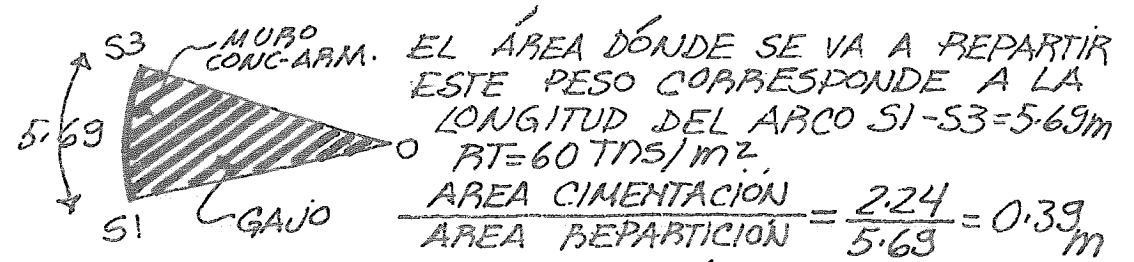 S3
MURO
CONC-ARM.
5.69
O
S1
GAJO
EL ÁREA DÓNDE SE VA A REPARTIR
ESTE PESO CORRESPONDE A LA
LONGITUD DEL ARCO S1-S3=5.69m
RT=60 TNS/m2
AREA CIMENTACIÓN / AREA REPARTICIÓN = 2.24 / 5.69 = 0.39m